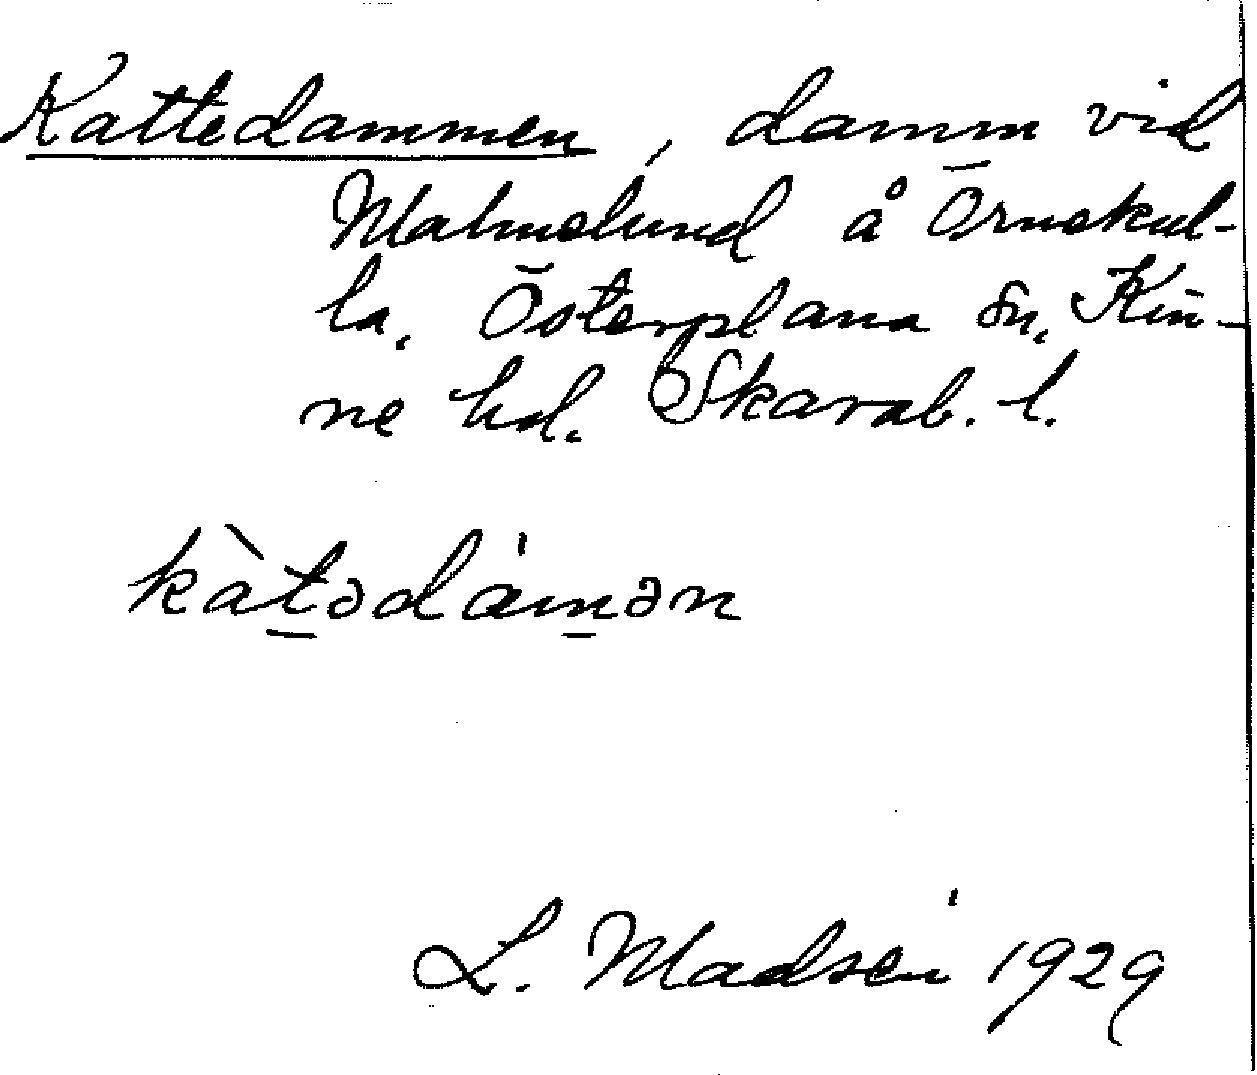 Kattedammen, damm vid
Malmelund å Örnekul-
la, Österplana sn, Kin-
ne hd. Skarab. l.
kàt̲ədám̲ən
L. Madsén 1929